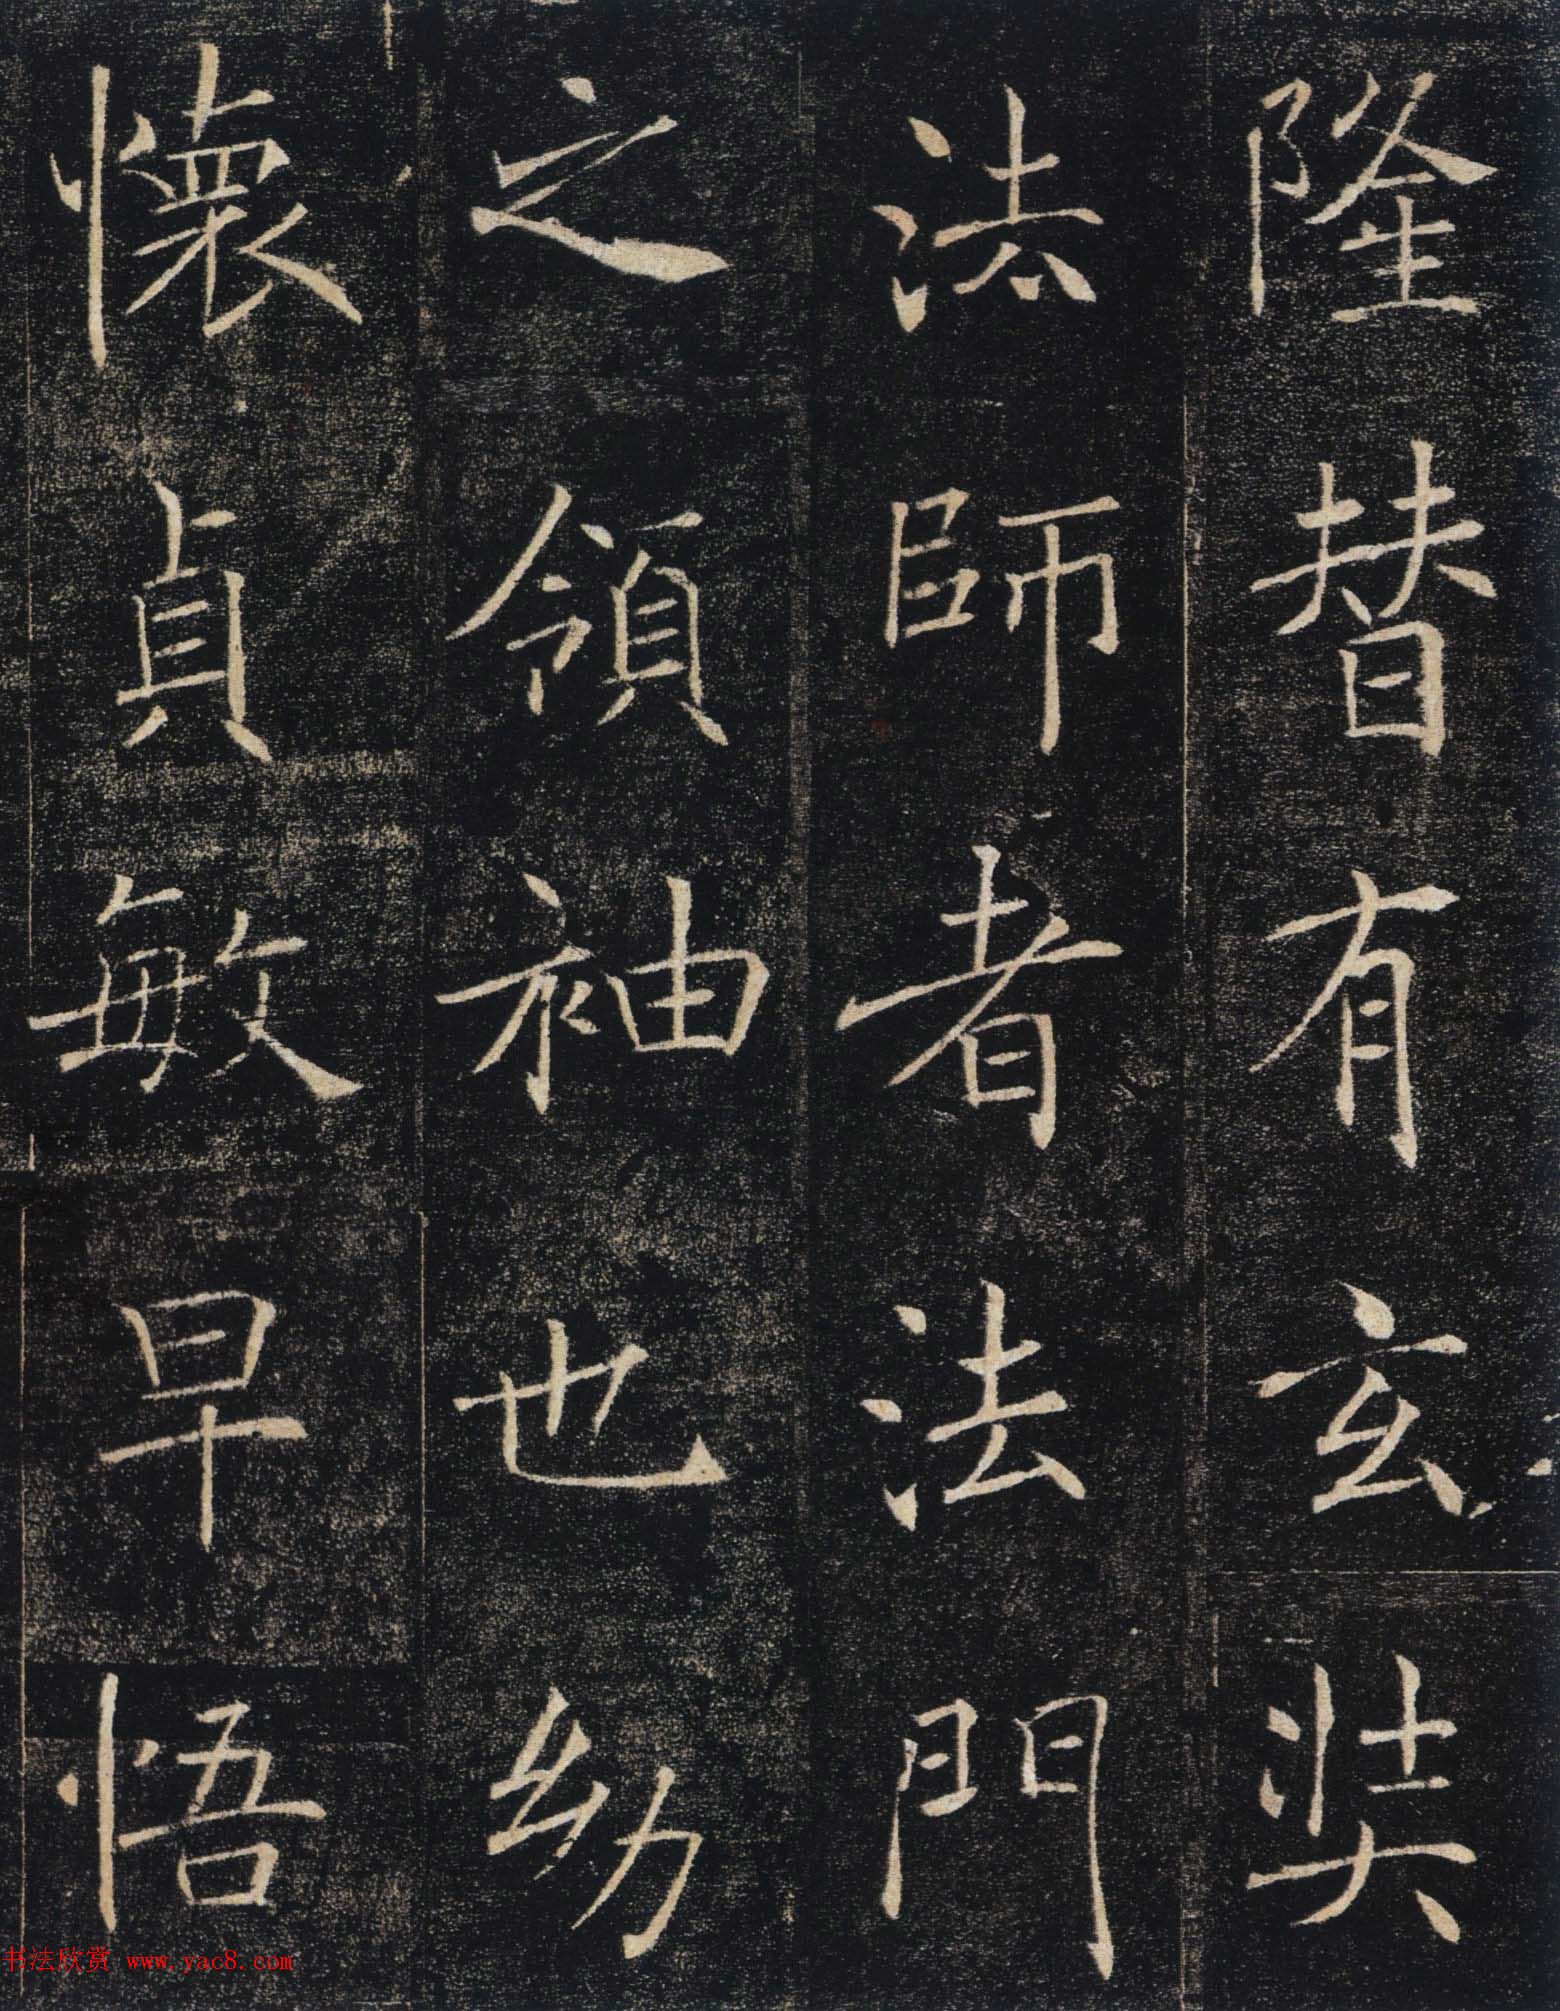 隆替有玄奘
法師者法門
之領袖也幼
懷貞敏早悟
书法欣赏 www.yac8.com